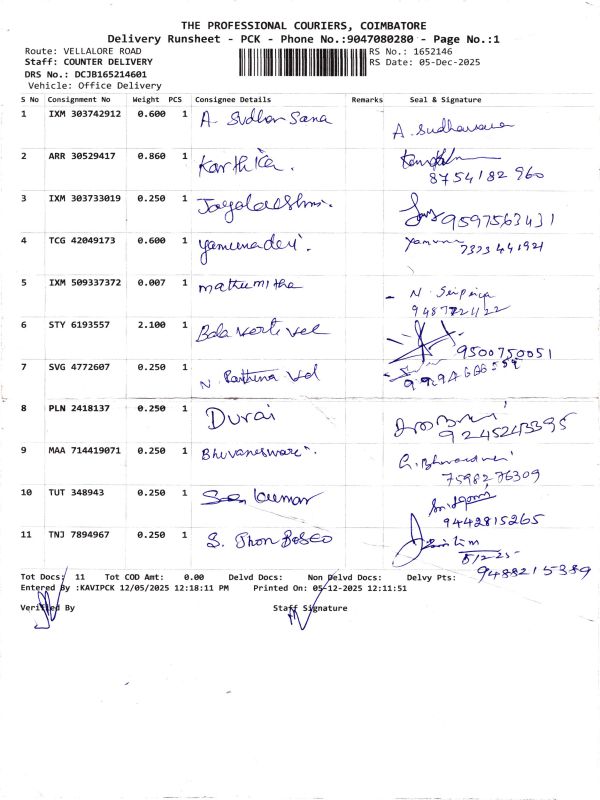 THE PROFESSIONAL COURIERS, COIMBATORE
Delivery Runsheet - PCK - Phone No.:9047080280 - Page No.:1
Route: VELLALORE ROAD RS No.: 1652146
Staff: COUNTER DELIVERY RS Date: 05-Dec-2025
DRS No.: DCJB165214601
Vehicle: Office Delivery
S No Consignment No Weight PCS Consignee Details Remarks Seal & Signature
1 IXM 303742912 0.600 1 A. Sudhan Sana A. Sudhansana
2 ARR 30529417 0.860 1 Karthika. 8754182 960
3 IXM 303733019 0.250 1 9597563431
4 TCG 42049173 0.600 1 Yamunadevi. Yamuna 7373441921
5 IXM 509337372 0.007 1 Mathumitha N.
6 STY 6193557 2.100 1 Bala vetri vel 9500750051
7 SVG 4772607 0.250 1 N. vel
8 PLN 2418137 0.250 1 Durai 9245243395
9 MAA 714419071 0.250 1 Bhuvaneswari. G. 7598276309
10 TUT 348943 0.250 1 kumar 9442815265
11 TNJ 7894967 0.250 1 S. Jhon BOSCO 5/12-25-
9488215389
Tot Docs: 11 Tot COD Amt: 0.00 Delvd Docs: Non Delvd Docs: Delvy Pts:
Entered By :KAVIPCK 12/05/2025 12:18:11 PM Printed On: 05-12-2025 12:11:51
Verified By Staff Signature